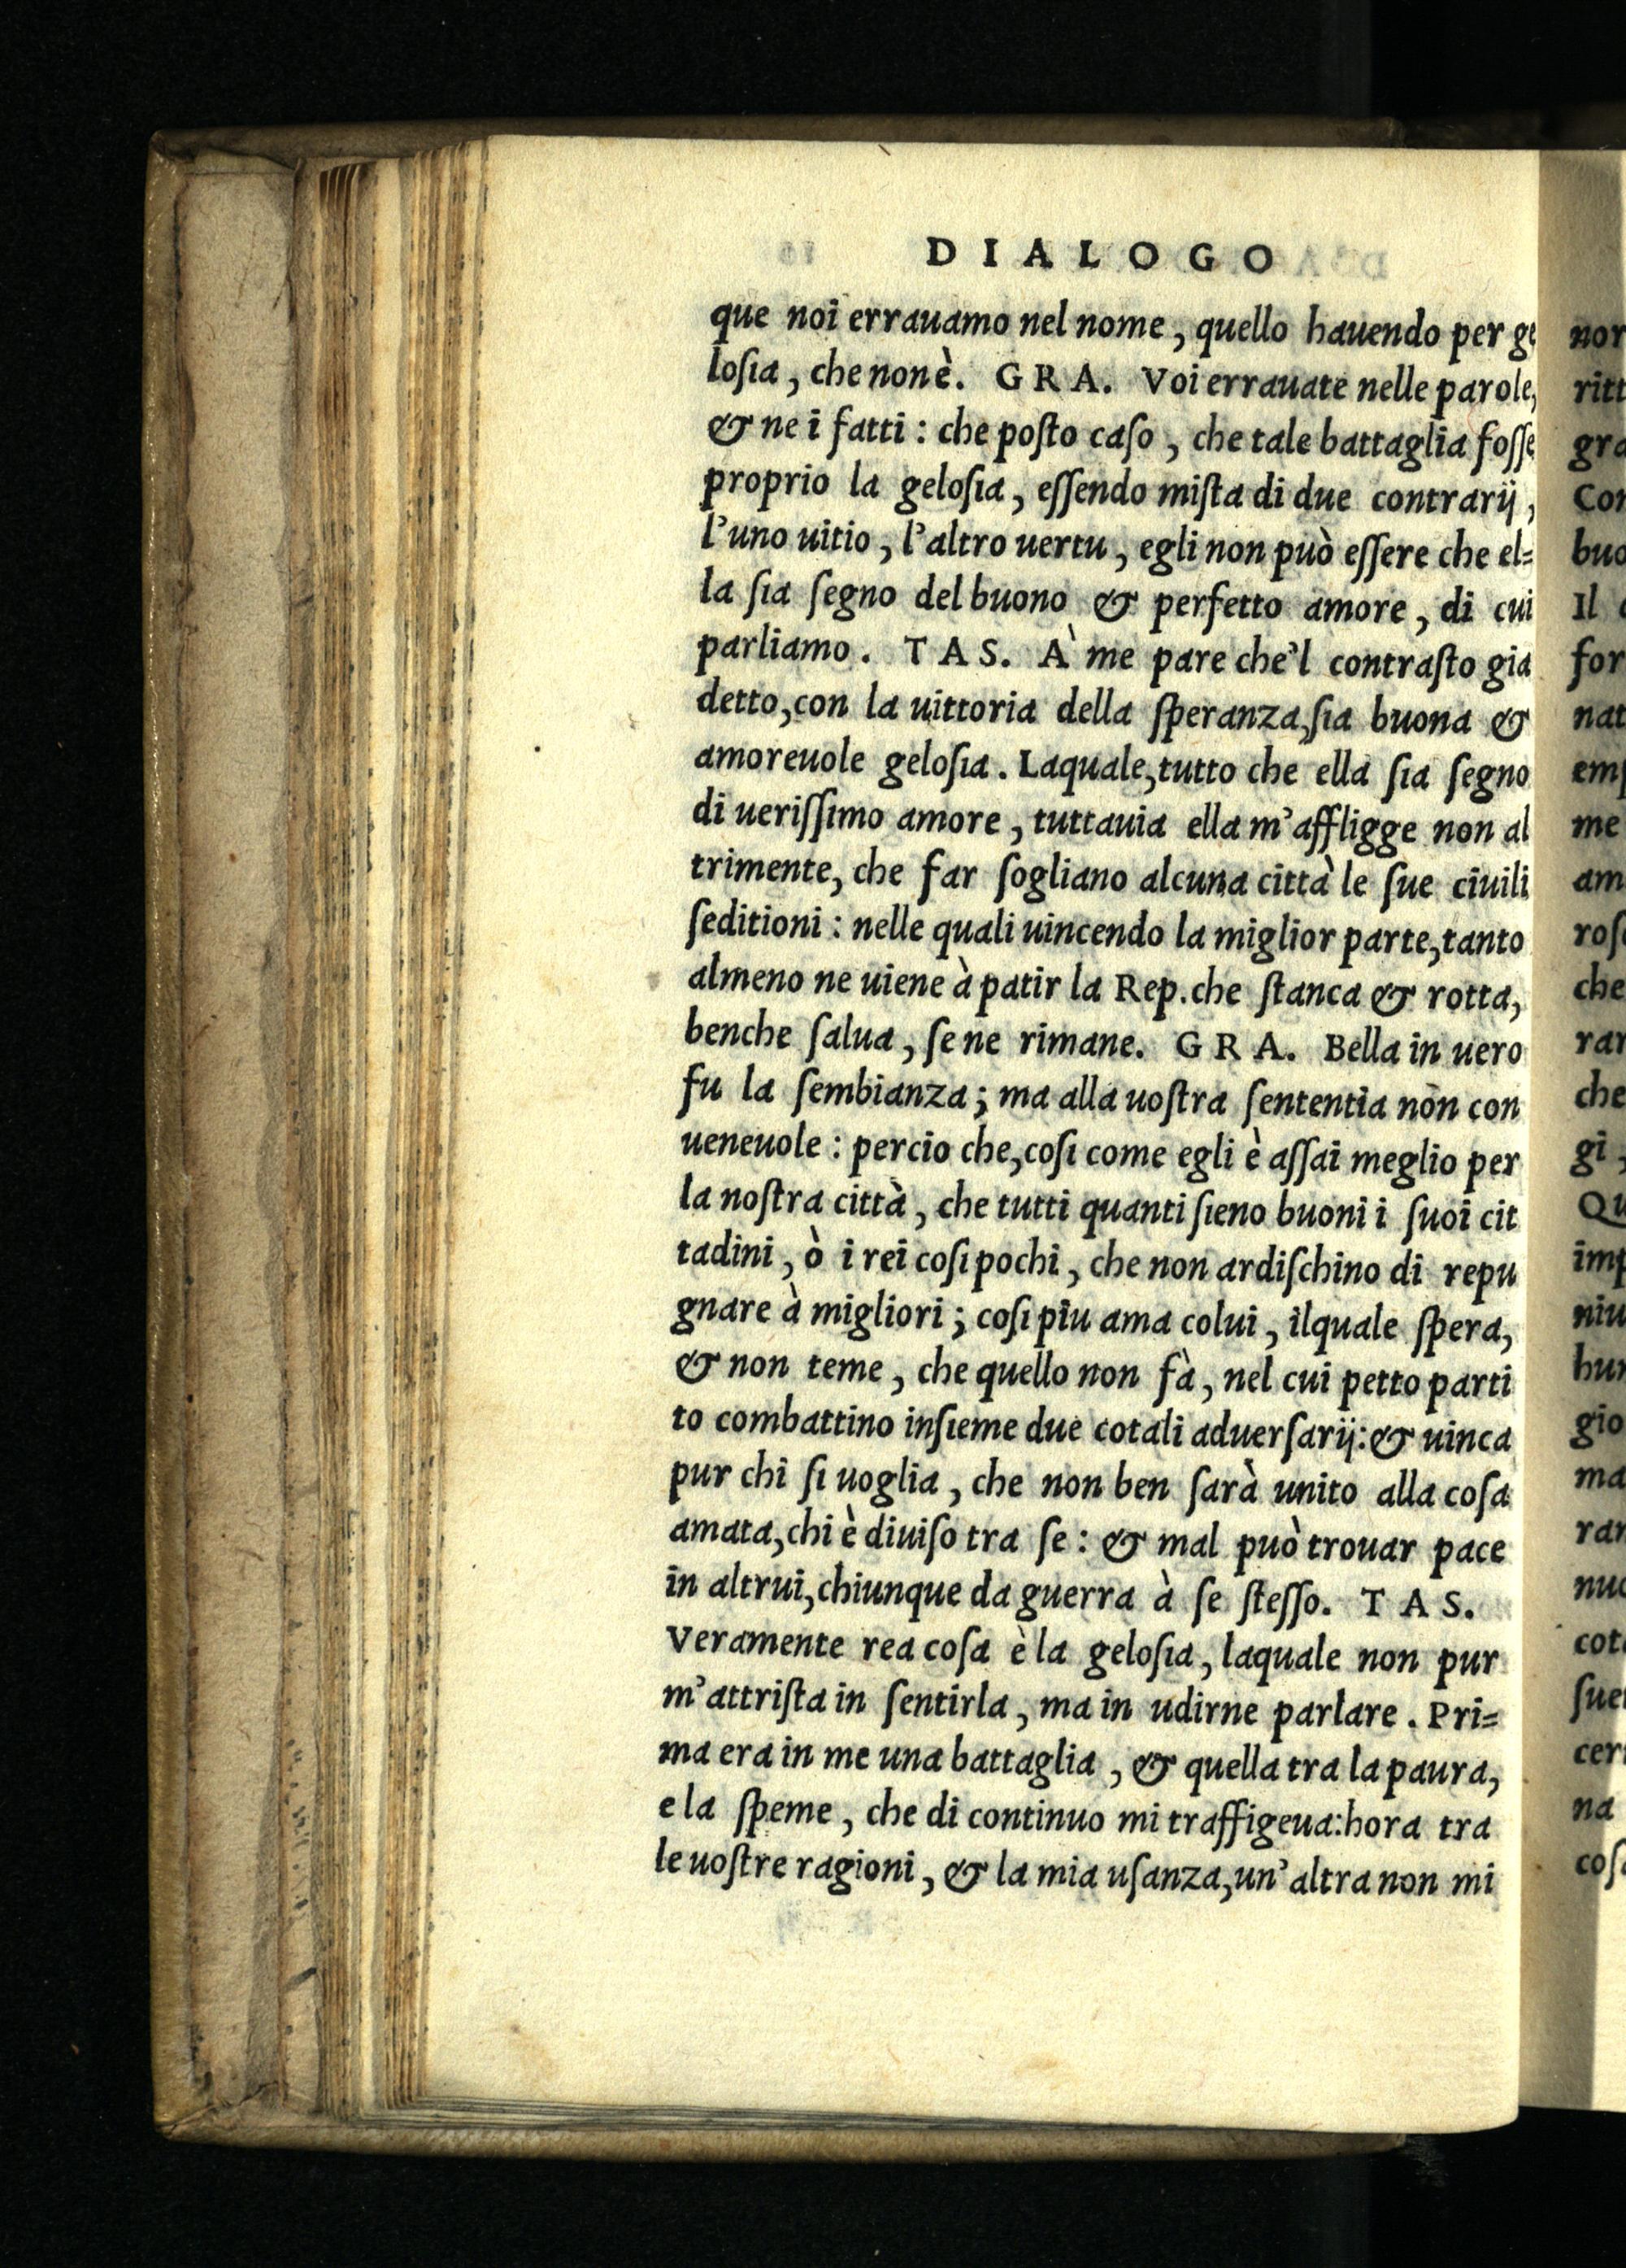 DIALOGO
que noi errauamo nel nome, quello hauendo per ge
loſia, che non è. GRA. Voi errauate nelle parole,
& ne i fatti: che poſto caſo, che tale battaglia foſſe
proprio la geloſia, eſſendo miſta di due contrarij,
l'uno uitio, l'altro uertu, egli non può eſſere che el=
la ſia ſegno del buono & perfetto amore, di cui
parliamo. TAS. À me pare che'l contraſto gia
detto, con la uittoria della ſperanza, ſia buona &
amoreuole geloſia. Laquale, tutto che ella ſia ſegno
di ueriſſimo amore, tuttauia ella m'affligge non al
trimente, che far ſogliano alcuna città le ſue ciuili
ſeditioni: nelle quali uincendo la miglior parte, tanto
almeno ne uiene à patir la Rep. che ſtanca & rotta,
benche ſalua, ſe ne rimane. GRA. Bella in uero
fu la ſembianza; ma alla uoſtra ſententia non con
ueneuole: percio che, coſi come egli è aſſai meglio per
la noſtra città, che tutti quanti ſieno buoni i ſuoi cit
tadini, ò i rei coſi pochi, che non ardiſchino di repu
gnare à migliori; coſi piu ama colui, ilquale ſpera,
& non teme, che quello non fà, nel cui petto parti
to combattino inſieme due cotali aduerſarij: & uinca
pur chi ſi uoglia, che non ben ſarà unito alla coſa
amata, chi è diuiſo tra ſe: & mal può trouar pace
in altrui, chiunque da guerra à ſe ſteſſo. TAS.
Veramente rea coſa è la geloſia, laquale non pur
m'attriſta in ſentirla, ma in udirne parlare. Pri=
ma era in me una battaglia, & quella tra la paura,
e la ſpeme, che di continuo mi traffigeua: hora tra
le uoſtre ragioni, & la mia uſanza, un'altra non mi